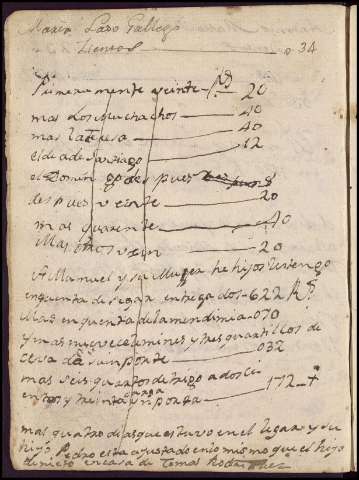 Maria Laso Gallego
tientos 034
Primeramente veinte - 20
mas dos muchachos 40
mas la tisera 40
el dia de santiago 12
el Domingo despues
despues veinte 20
mas quarenta 40
Mas vein 20
A Manuel y su Muger he hijos les tengo
en quenta de segar entregados - 622
Mas en quenta de la mendimia - 070
y mas nueve celemines y tres quartillos de
cevada su inporte 032
mas seis quartos de trigo a dosci
entos y treinta inporta 172
mas quatro dias que estuvo en el legar y su
hijo Pedro esta ajustado en lo mismo que el hijo
de nieto en casa de Tomas Rodriguez